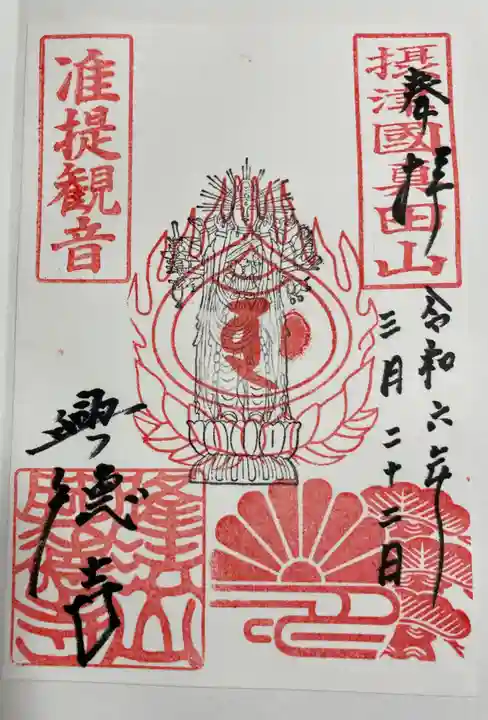 摂津國真田山
奉拝
令和六年
三月二十二日
准提観音
興徳寺